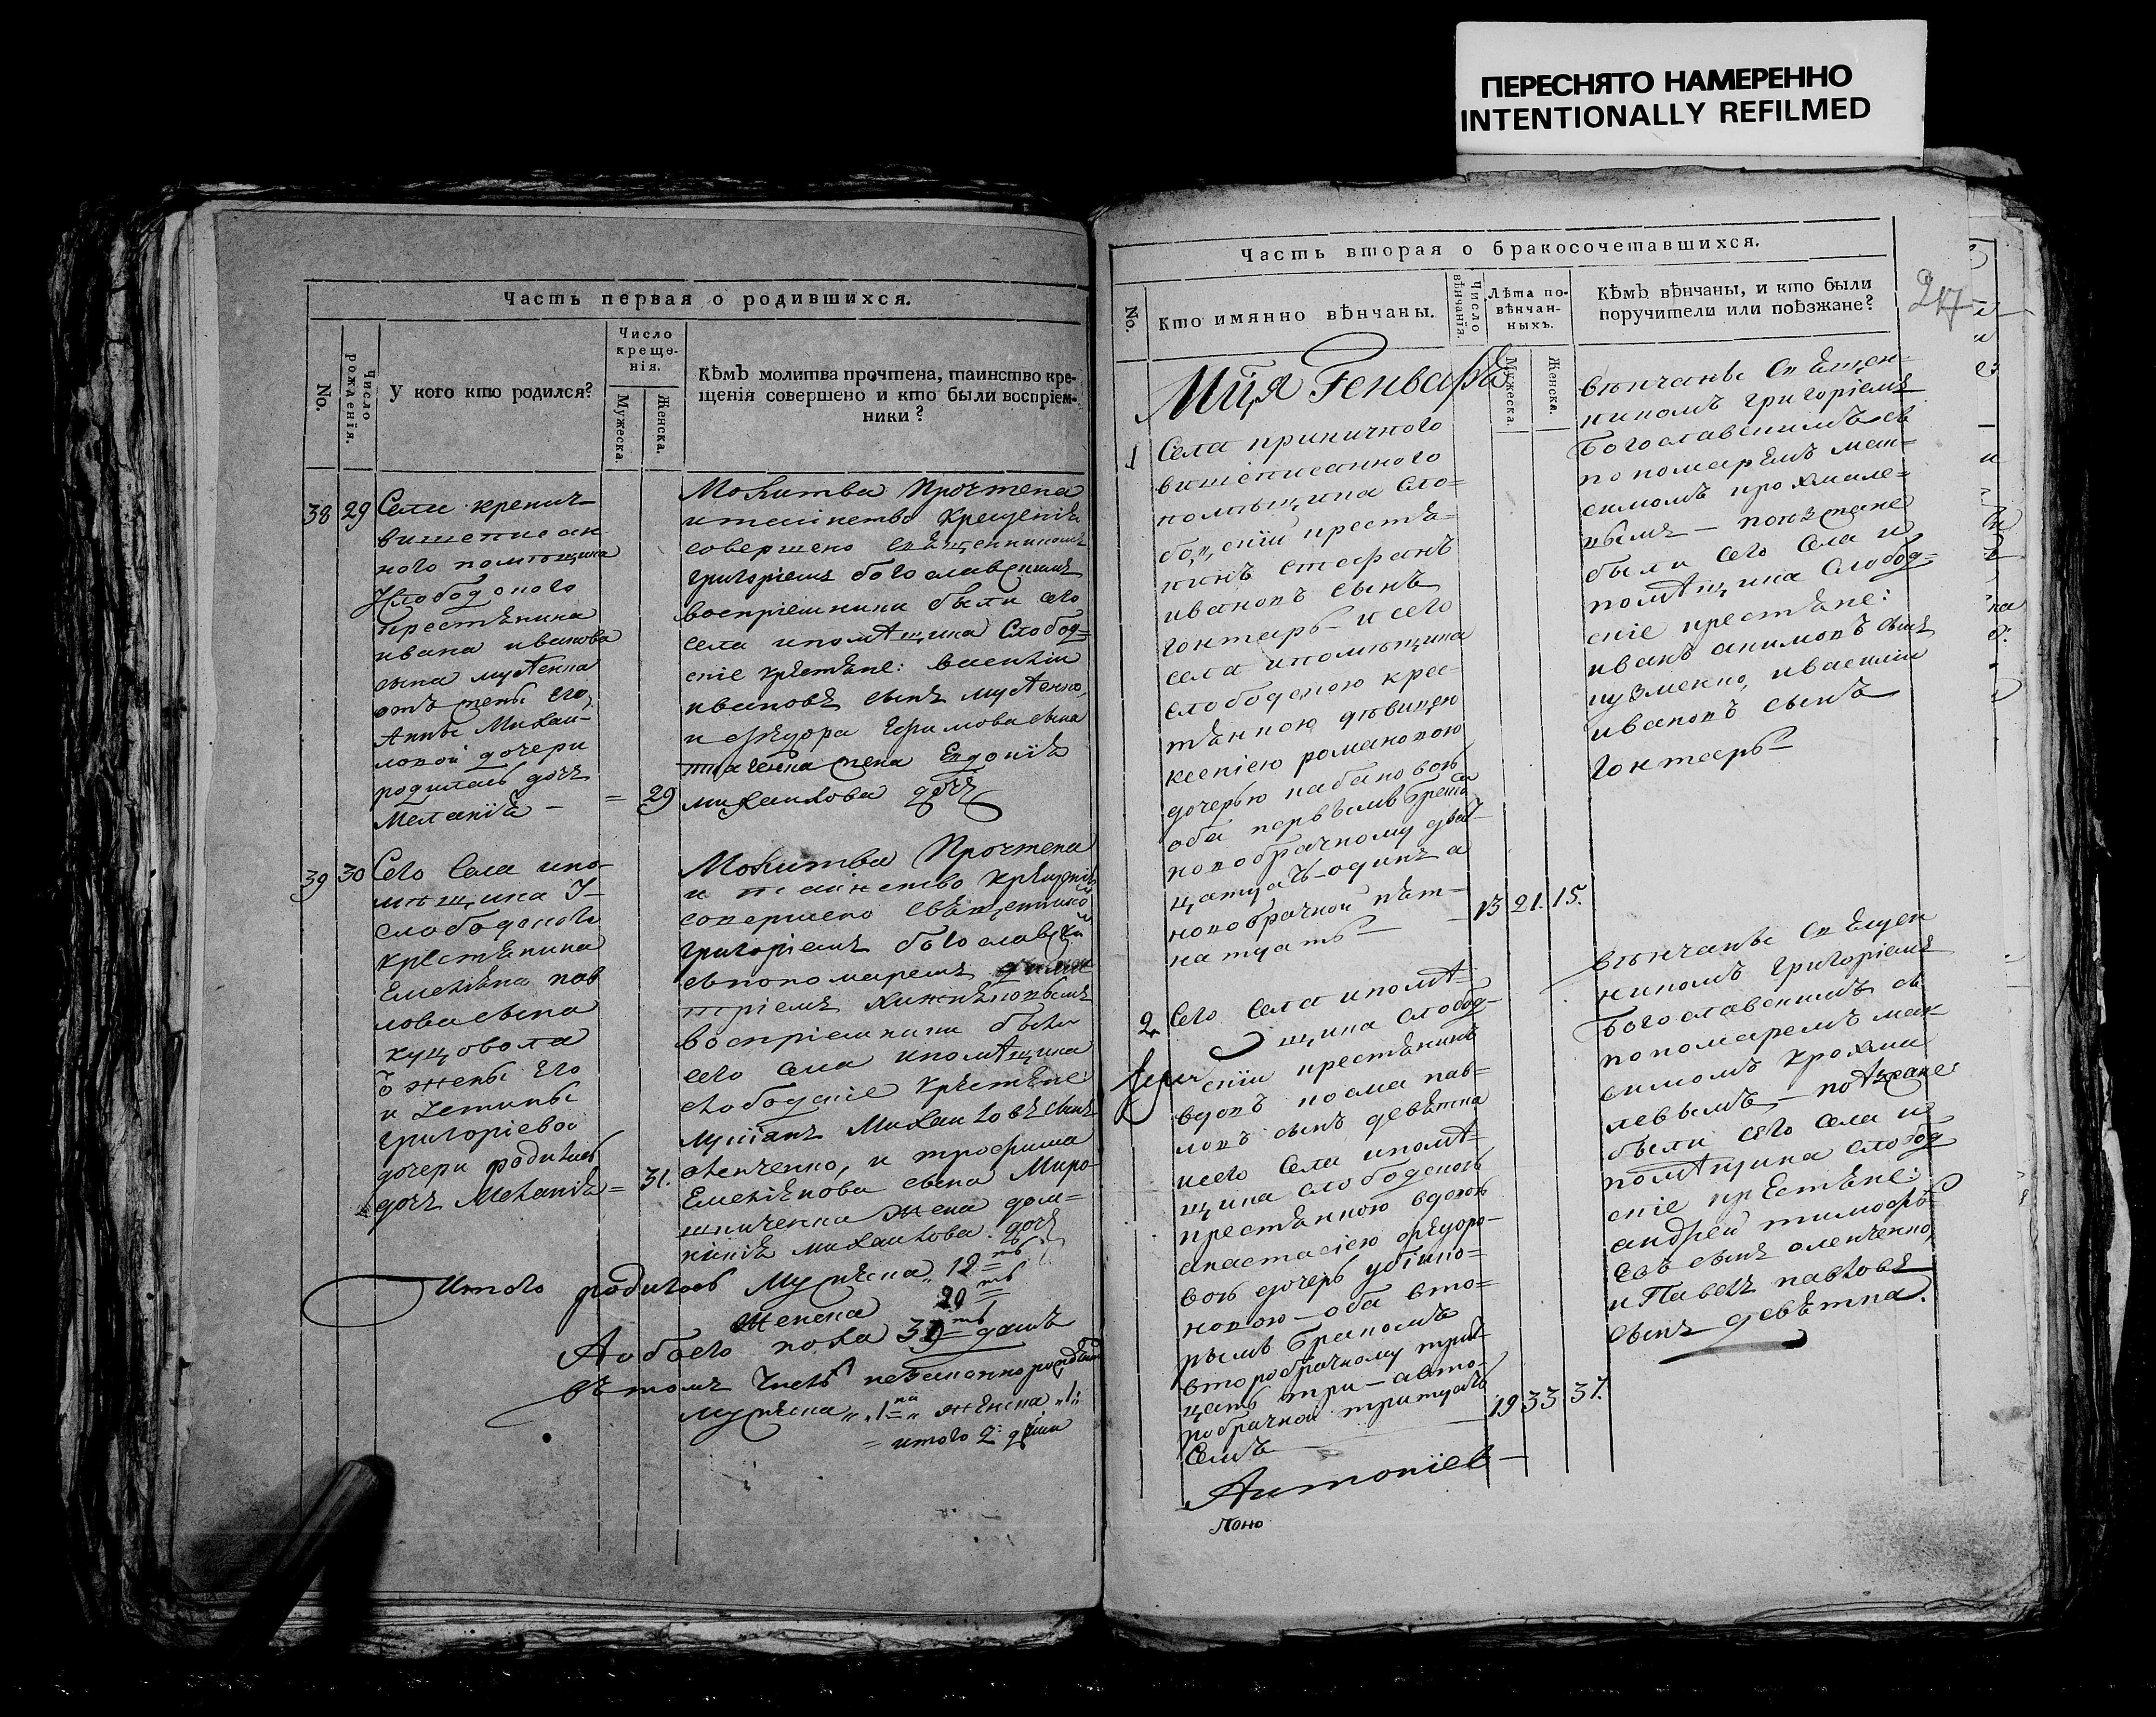 ПЕРЕСНЯТО НАМЕРЕННО
INTENTIONALLY REFILMED
Часть первая о родившихся.
No.
Число рожденія.
У кого кто родился?
Число
креще-
нія.
Мужеска.
Женска.
Кѣмъ молитва прочтена, таинство кре-
щенія совершено и кто были воспріем-
ники?
38 29
Села кринич
вишеписан
ного помѣщика
Слободского
крестѣнина
ивана иванова
сына
отъ жены его
Анны Михаи-
ловой дочери
родилась дочъ
Меланіѣ — = 29
Молитва Прочтена
и таинство Крещеніѣ
совершено свѣщенникомъ
григоріемъ богославскимъ
воспріемники были сего
села ипомѣщика Слобод=
скіе крестѣне: василіи
ивановъ сынъ
и фѣдора Ефимова сына
жена Евдокіѣ
михаилова дочъ
39 30
Сего села ипо-
мѣщика
слободского
крестѣнина
Емелѣна пав
лова сына
куцовола
ѿ жены Его
григоріевой
дочери родилась
дочъ Меланіѣ = 31.
Молитва Прочтена
и таинство крещеніѣ
совершено свѣщенником
григоріемъ богославски
съпономаремъ дими
тріемъ
воспріемники были
сего села ипомѣщика
слободскіе крѣстѣне
Михаиловъ сынъ
оленченко, и трофима
Емелѣнова сына Миро-
шниченка жена дом=
никіѣ михаилова дочъ
Итого родилось Мужеска 19=ть
Женска 20=ть
А обоего пола 39=ть душъ
въ томъ числѣ незаконнорожденн
мужеска „1=на„ женска „1„
= итого 2: души
Часть вторая о бракосочетавшихся.
217
No.
Кто имянно вѣнчаны.
Число вѣнчанія.
Лѣта по-
вѣнчан-
ныхъ.
Мужеска.
Женска.
Кѣмъ вѣнчаны, и кто были
поручители или поѣзжане?
Мц̃я Генваря
1
Села криничного
вишеписанного
помѣщика сло=
бодскіи крестѣ-
нинъ стефанъ
ивановъ сынъ
гонтарь- и сего
села ипомѣщика
слободскою крес-
тѣнкою дѣвицею
ксеніею романовою
дочерью кабановою
оба первымъ браком
новобрачному двад-
цатъ-одинъ а
новобрачной пѣт-
натдать — 13 21. 15.
вѣнчаны свѣщен-
никомъ григоріемъ
богославскимъ съ
пономарѣмъ мак=
симомъ крохмале=
вымъ — поѣзжане
были сего села и
помѣщика слобод=
скіе крестѣне:
иванъ акимовъ сынъ
кузменко, ивасиліи
ивановъ сынъ
гонтарь
2.
Сего села ипомѣ-
щика слобод-
скіи крестѣнинъ
вдовъ пав=
ловъ сынъ девѣтка
исего села ипомѣ-
щика слободскою
крестѣнкою вдовою
анастасіею фѣдоро-
вою дочерь
новою — оба вто=
рымъ бракомъ
второбрачному трид
цать три — авто-
робрачной тритцать
семъ — 19 33 37.
вѣнчаны свѣщен
никомъ григоріемъ
богославскимъ съ
пономаремъ мак
симомъ крохма
левымъ — поѣзжане
были сего села и
помѣщика слобод
скіе крѣстѣне:
андрей тимофѣ
евъ сынъ оленченко,
и Павелъ павловъ
сынъ девѣтка.
Антоніев